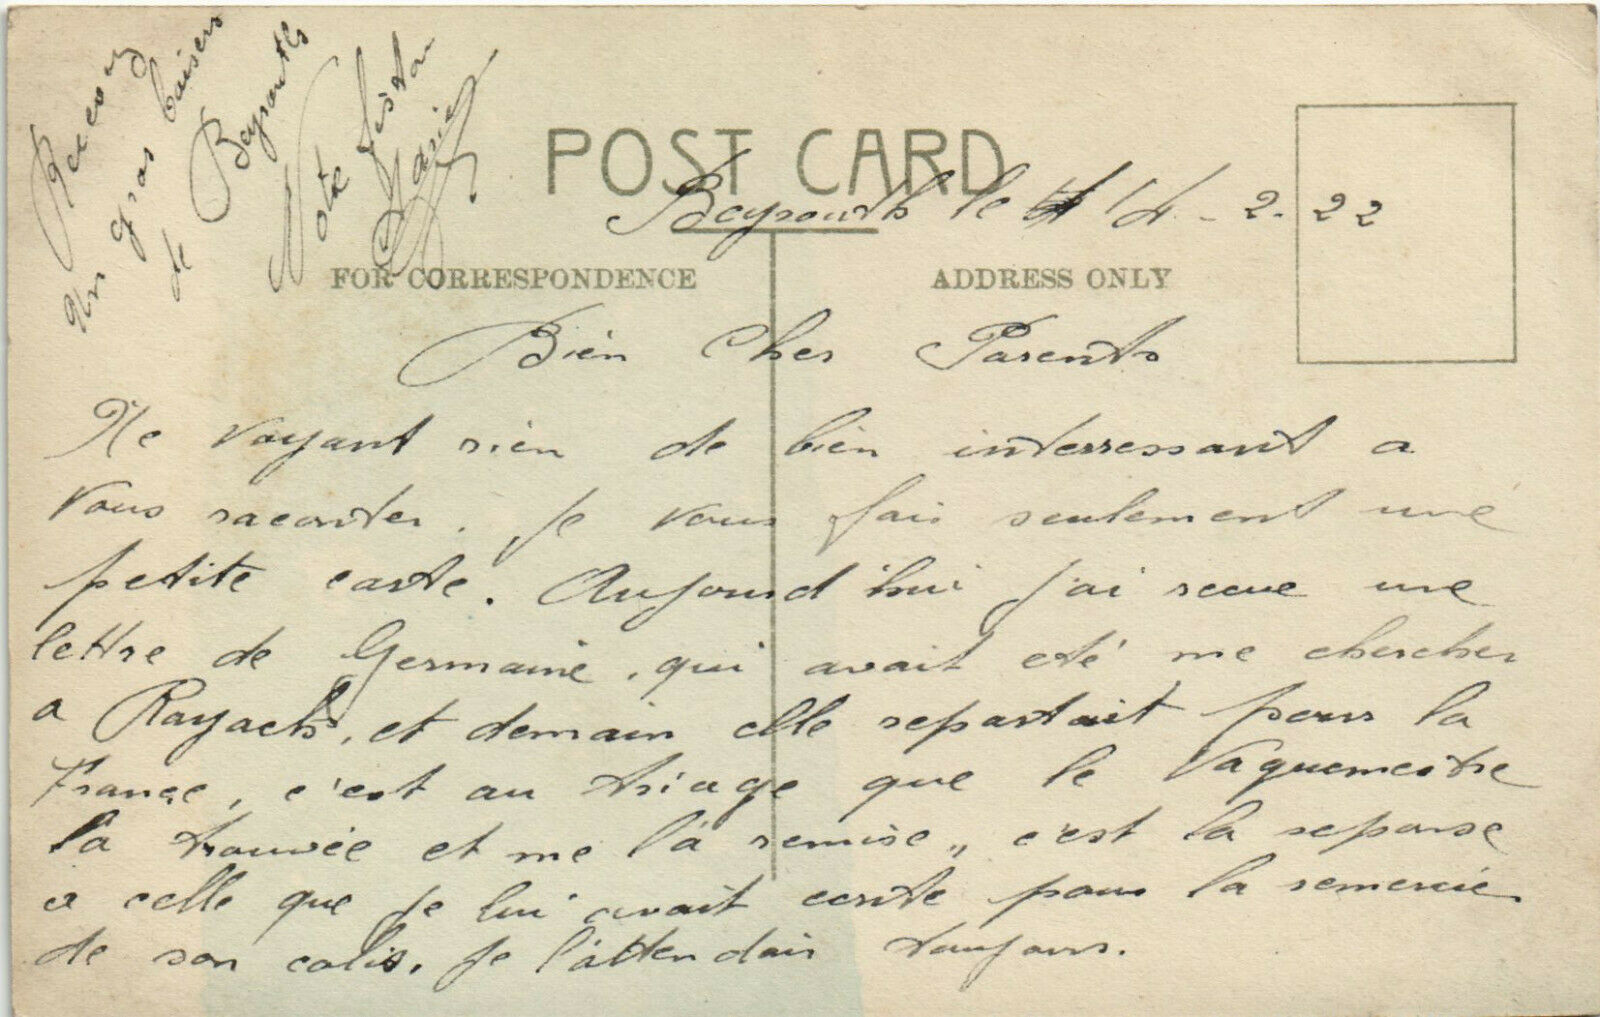 POST CARD
Beyrouth le 14 - 2. 22
FOR CORRESPONDENCE
ADDRESS ONLY
Bien Cher Parents
Ne voyant rien de bien interressant a
vous raconter. je vous fais seulement une
petite carte. Aujourd'hui j'ai recue une
lettre de Germaine, qui avait eté me chercher
a Rayack, et demain elle repartait pour la
France, c'est au triage que le Vaguemestre
l'a trouvée et me l'a remise,, c'est la reponse
a celle que je lui avait ecrite pour la remercie
de son colis. je l'attendais toujours.
un gros baisers
de Beyrouth
Votre fiston